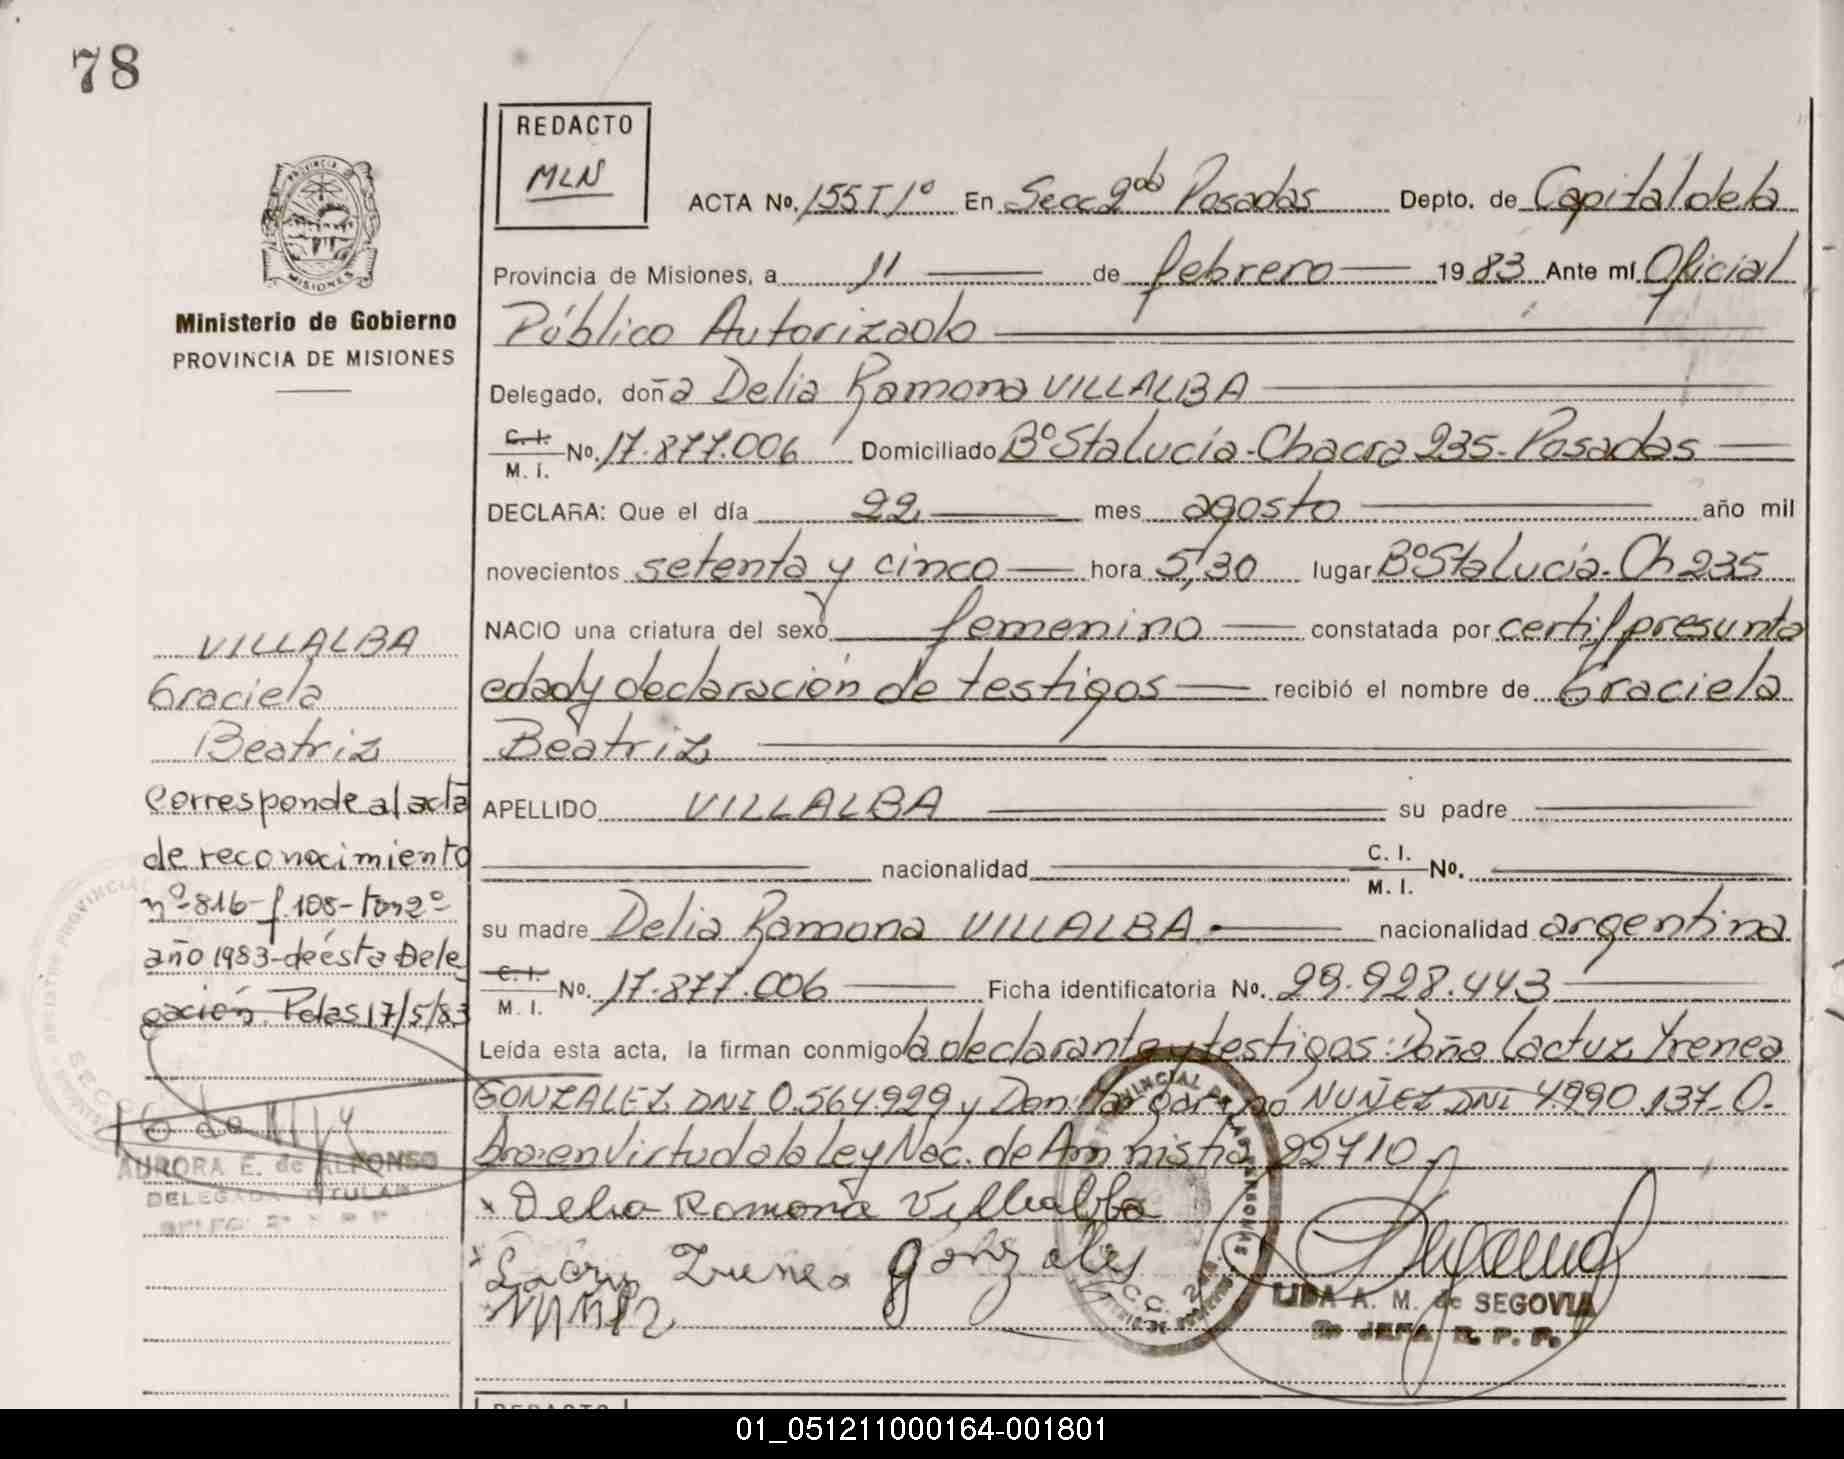 78
REDACTO
MLN
PROVINCIA
MISIONES
Ministerio de Gobierno
PROVINCIA DE MISIONES
ACTA No. 155 T/1º En Secc 2da Posadas Depto. de Capital de la
Provincia de Misiones, a 11 de febrero 1983 Ante mí Oficial
Público Autorizado
Delegado, doña Delia Ramona VILLALBA
C. I.
M. I. No. 17.877.006 Domiciliado Bº Sta Lucía - Chacra 235 - Posadas
DECLARA: Que el día 22 mes agosto año mil
novecientos setenta y cinco hora 5,30 lugar Bº Sta Lucía - Ch 235
NACIO una criatura del sexo femenino constatada por certif presunta
edad y declaración de testigos recibió el nombre de Graciela
Beatriz
APELLIDO VILLALBA su padre
nacionalidad C. I.
M. I. No.
su madre Delia Ramona VILLALBA nacionalidad argentina
C. I.
M. I. No. 17.877.006 Ficha identificatoria No. 29.928.443
Leída esta acta, la firman conmigo la declarante y testigos: Doña Lactuz Yrenea
GONZALEZ DNI 0.564.929 y Don NUÑEZ DNI 4.990.137 - O.
en virtud a la ley Nac. de Amnistia 22710
x Delia Ramona Villalba
x Yrenea Gonzales
Nuñez
LIDA A. M. de SEGOVIA
JEFA R. P. P.
VILLALBA
Graciela
Beatriz
Corresponde al acta
de reconocimiento
nº 816 - f. 108 - tom 2º
año 1983 - de ésta Dele
gación. Pdas 17/5/83
AURORA E. de ALFONSO
DELEGADA TITULAR
REDACTO
01_051211000164-001801